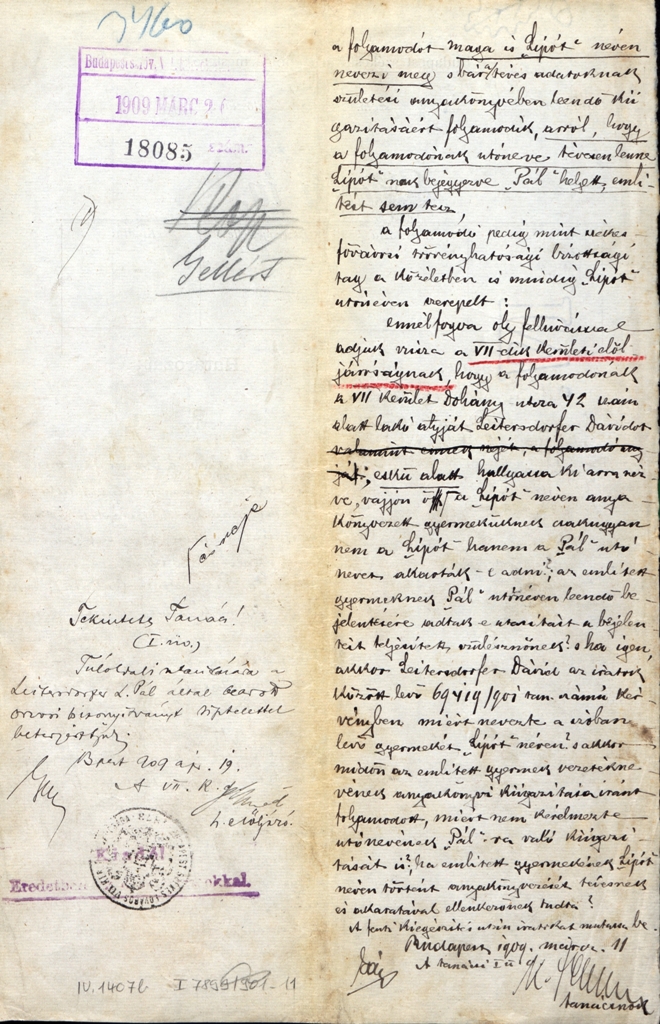 3460
Budapest
1909 MÁRC 2
18085 szám.
Gellért
Tekintetes Tanács!
(I. üo.)
Túloldali utasítására a
Leitersdorfer L. Pál által beadott
orvosi bizonyítványt tisztelettel
beterjesztjük.
Bpest 909 ápr. 19.
A VII. k.
h. elöljáró.
Eredetben okkal.
IV. 1407 b I 11
a folyamodót maga is „Lipót" néven
nevezi meg s bár téves adatoknak
születési anyakönyvében leendő kii
gazitásáért folyamodik, arról, hogy
a folyamodónak utóneve tévesen lenne
„Lipót"nak bejegyezve „Pál" helyett, emli
tést sem tesz,
a folyamodó pedig mint székes
fővárosi törvényhatósági bizottsági
tag a közéletben is mindig „Lipót"
utónéven szerepelt:
ennélfogva oly felhívással
adjuk vissza a VII-dik kerületi elöl
járóságnak, hogy a folyamodónak
a VII kerület Dohány utcza 42 szám
alatt lakó atyját Leitersdorfer Dávidot
valamint ennek nejét, a folyamodó any
ját, eskü alatt hallgassa ki arra néz
ve, vajjon a „Lipót" néven anya
könyvezett gyermeküknek csakugyan
nem a „Lipót" hanem a „Pál" utó
nevet akarták-e adni?; az említett
gyermeknek „Pál" utónéven leendő be
jelentésére adtak e utasítást a bejelen
tést teljesített szülésznőnek? s ha igen,
akkor Leitersdorfer Dávid az iratok
között levő 69419/901 tan. számú kér
vényben miért nevezte a szóban
levő gyermekét „Lipót" néven? s akkor
midőn az említett gyermek vezetékne
vének anyakönyvi kiigazitása iránt
folyamodott, miért nem kérelmezte
utónevének „Pál"-ra való kiigazi
tását is?; ha említett gyermekének „Lipót"
néven történt anyakönyvezését tévesnek
és akaratával ellenkezőnek tudta?
A fenti kiegészítés után iratokat mutassa be.
Budapest 1909. márcz. 11
A tanácsi
tanácsnok